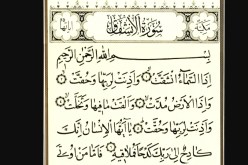 سورة الانشقاق
بسم الله الرحمن الرحيم
إذا السماء انشقت ۝ وأذنت لربها وحقت ۝
وإذا الأرض مدت ۝ وألقت ما فيها وتخلت ۝
وأذنت لربها وحقت ۝ يا أيها الإنسان إنك
كادح إلى ربك كدحا فملاقيه ۝ فأما من أوتي